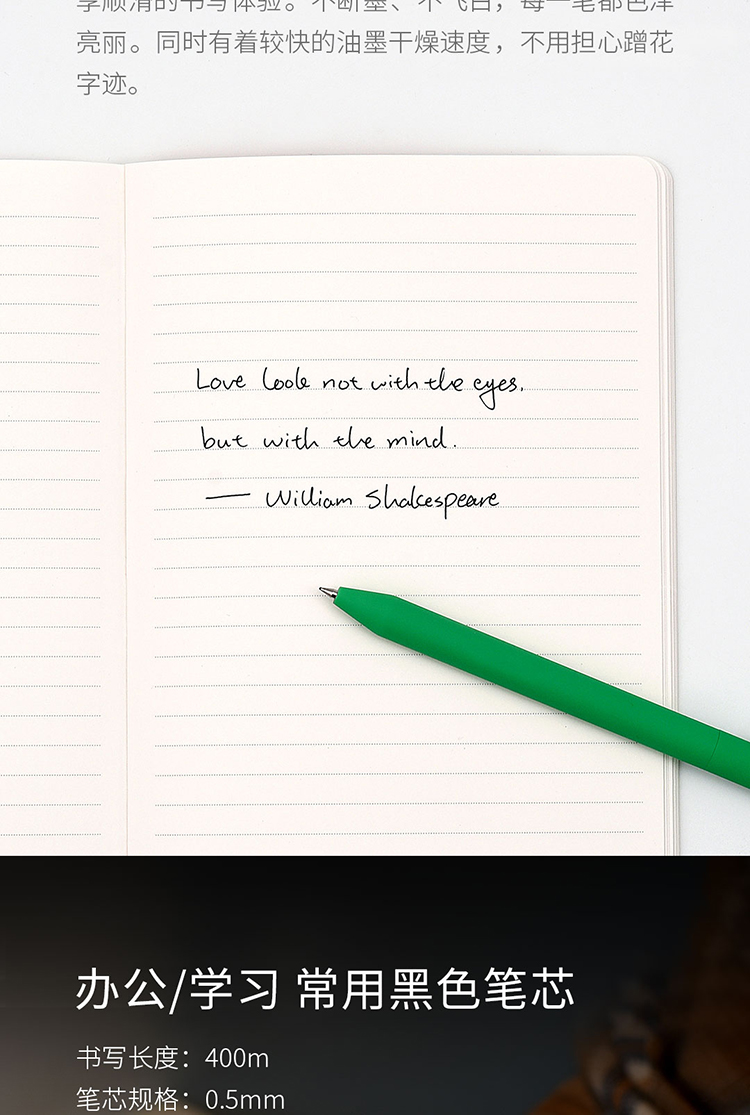 享顺滑的书写体验。不断墨、不飞白，每一笔都色泽
亮丽。同时有着较快的油墨干燥速度，不用担心蹭花
字迹。
Love look not with the eyes,
but with the mind.
— William Shakespeare
办公/学习 常用黑色笔芯
书写长度：400m
笔芯规格：0.5mm